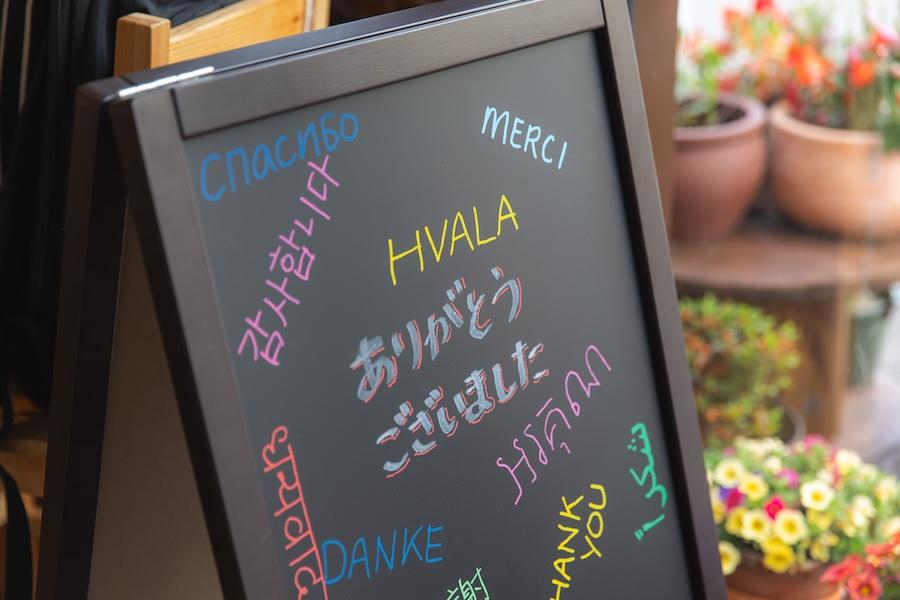 Спасибо
MERCI
감사합니다
HVALA
ありがとう
ございました
ขอบคุณ
شكراً
धन्यवाद
DANKE
THANK
YOU
謝